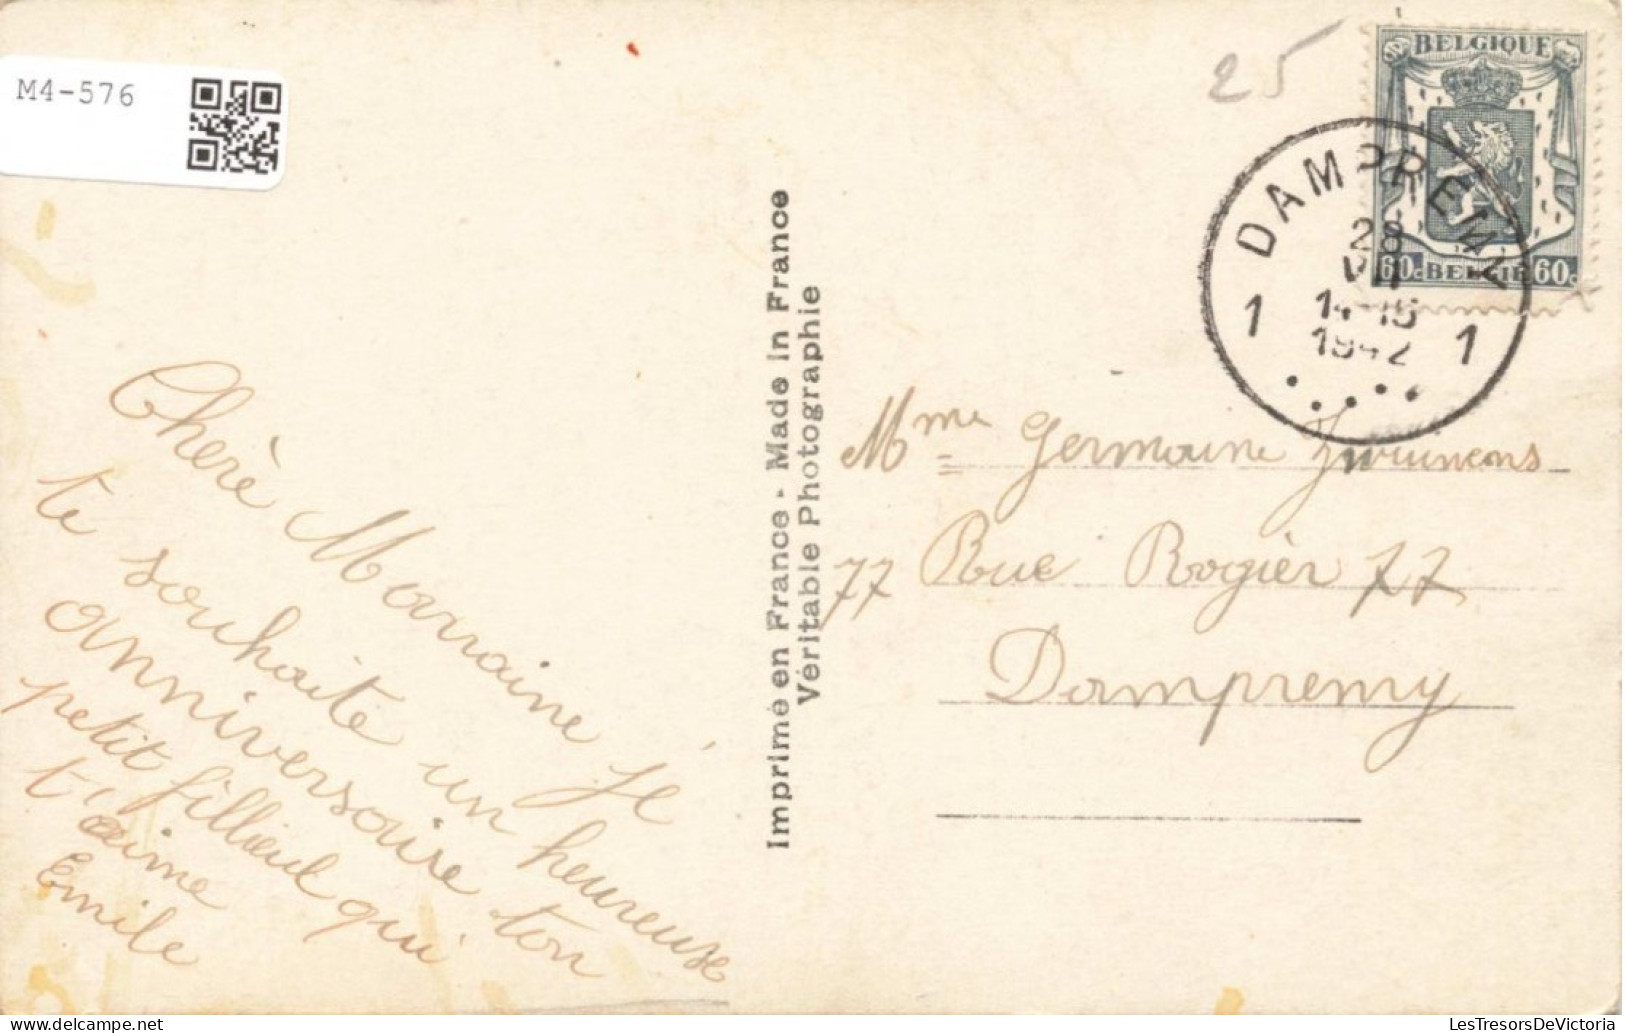 M4-576
25
BELGIQUE
60c BELGIË 60c
DAMPREMY
28
VII
14-15
1942
1 1
Cherè Marraine Je
te souhaite un heureuse
anniversaire ton
petit fillieul qui
t'aime
Emile
Imprimé en France - Made in France
Véritable Photographie
Mme Germaine
77 Rue Rogièr 77
Dampremy
LesTresorsDeVictoria